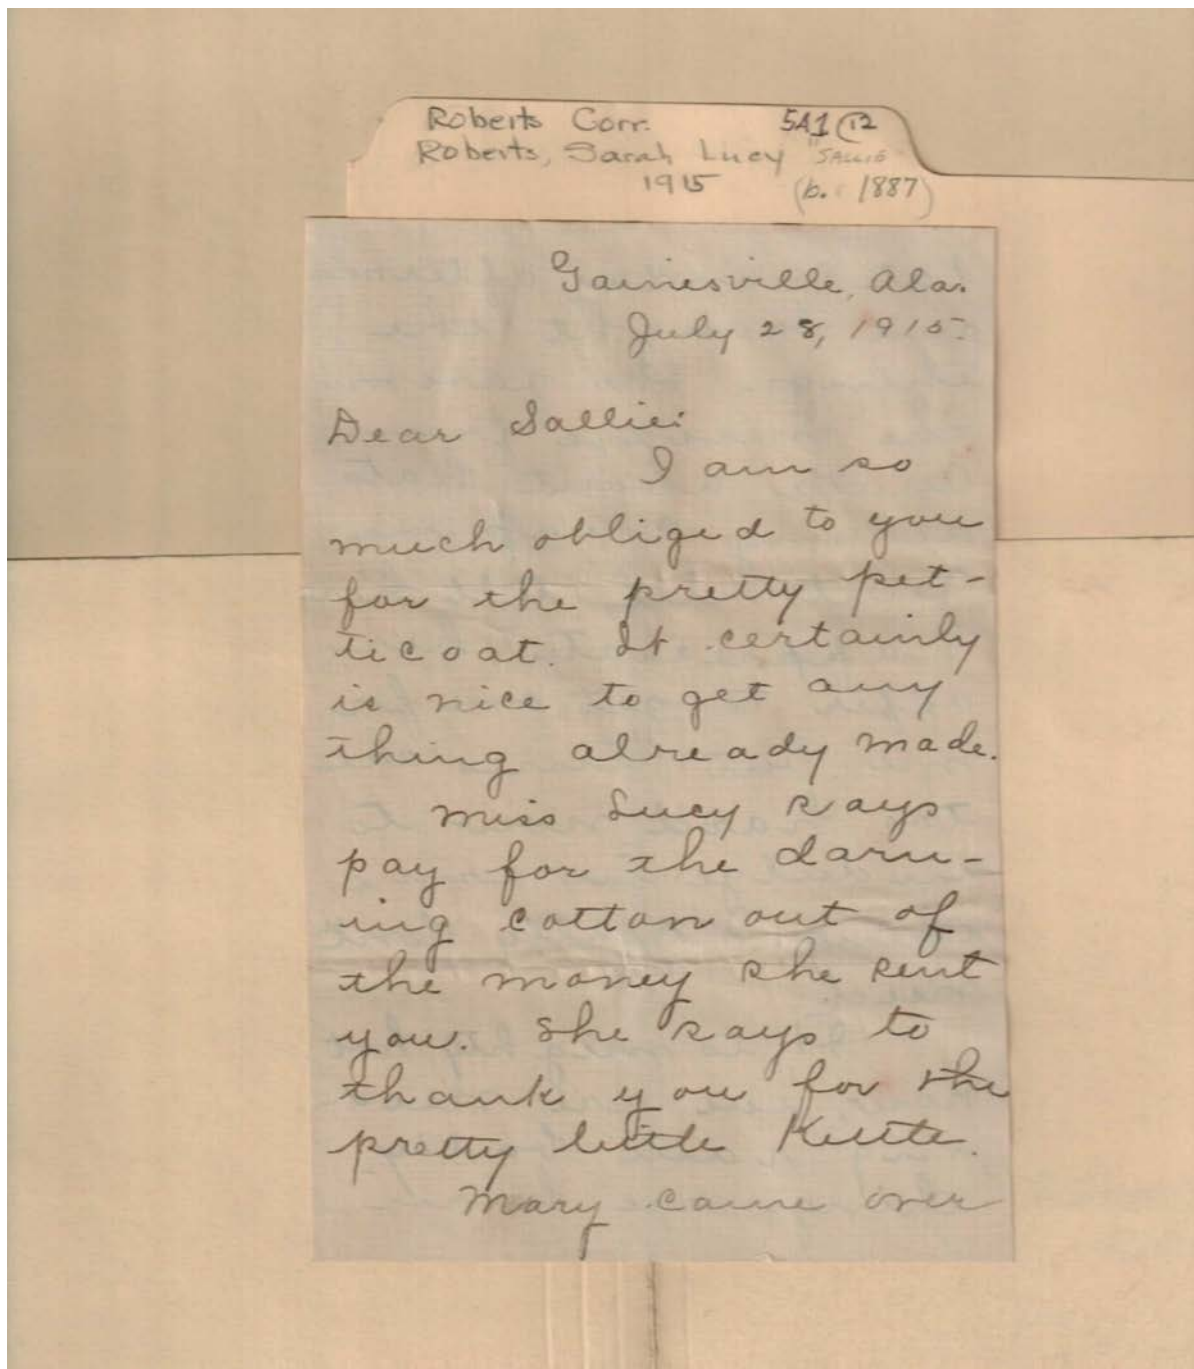 Roberts Corr. 5A1 (12
Roberts, Sarah Lucy "SALLIE
1915 (b. 1887)
Gainesville, Ala.
July 28, 1915.
Dear Sallie:
I am so
much obliged to you
for the pretty pet-
ticoat. It certainly
is nice to get any
thing already made.
Miss Lucy says
pay for the darn-
ing cotton out of
the money she sent
you. She says to
thank you for the
pretty little
Mary came over